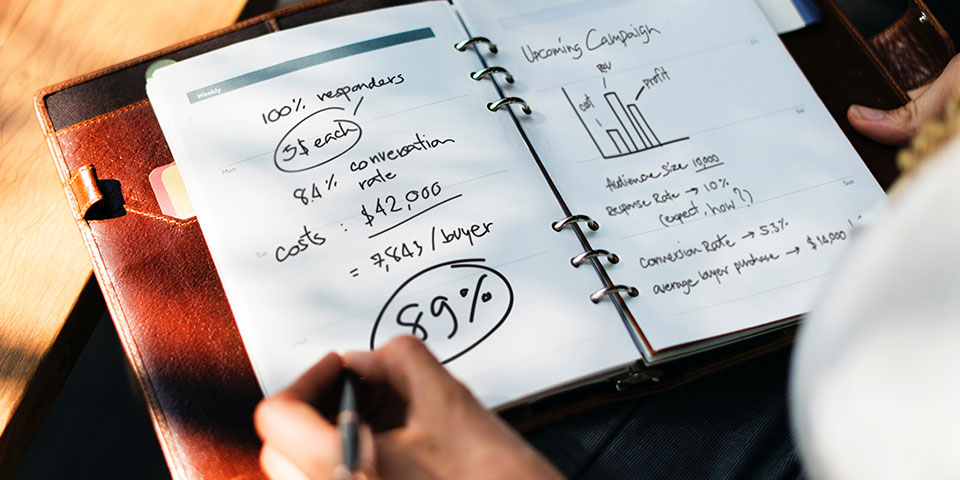 Weekly
100% responders
5$ each
8.4% conversation
rate
costs : $42,000
= 7,843/buyer
89%
Mon
Tue
Upcoming Campaign
cost
Profit
Audience Size 10,000
Response Rate → 10%
(expect, how?)
Conversion Rate → 5.3%
average buyer purchase → $14,000
Sun